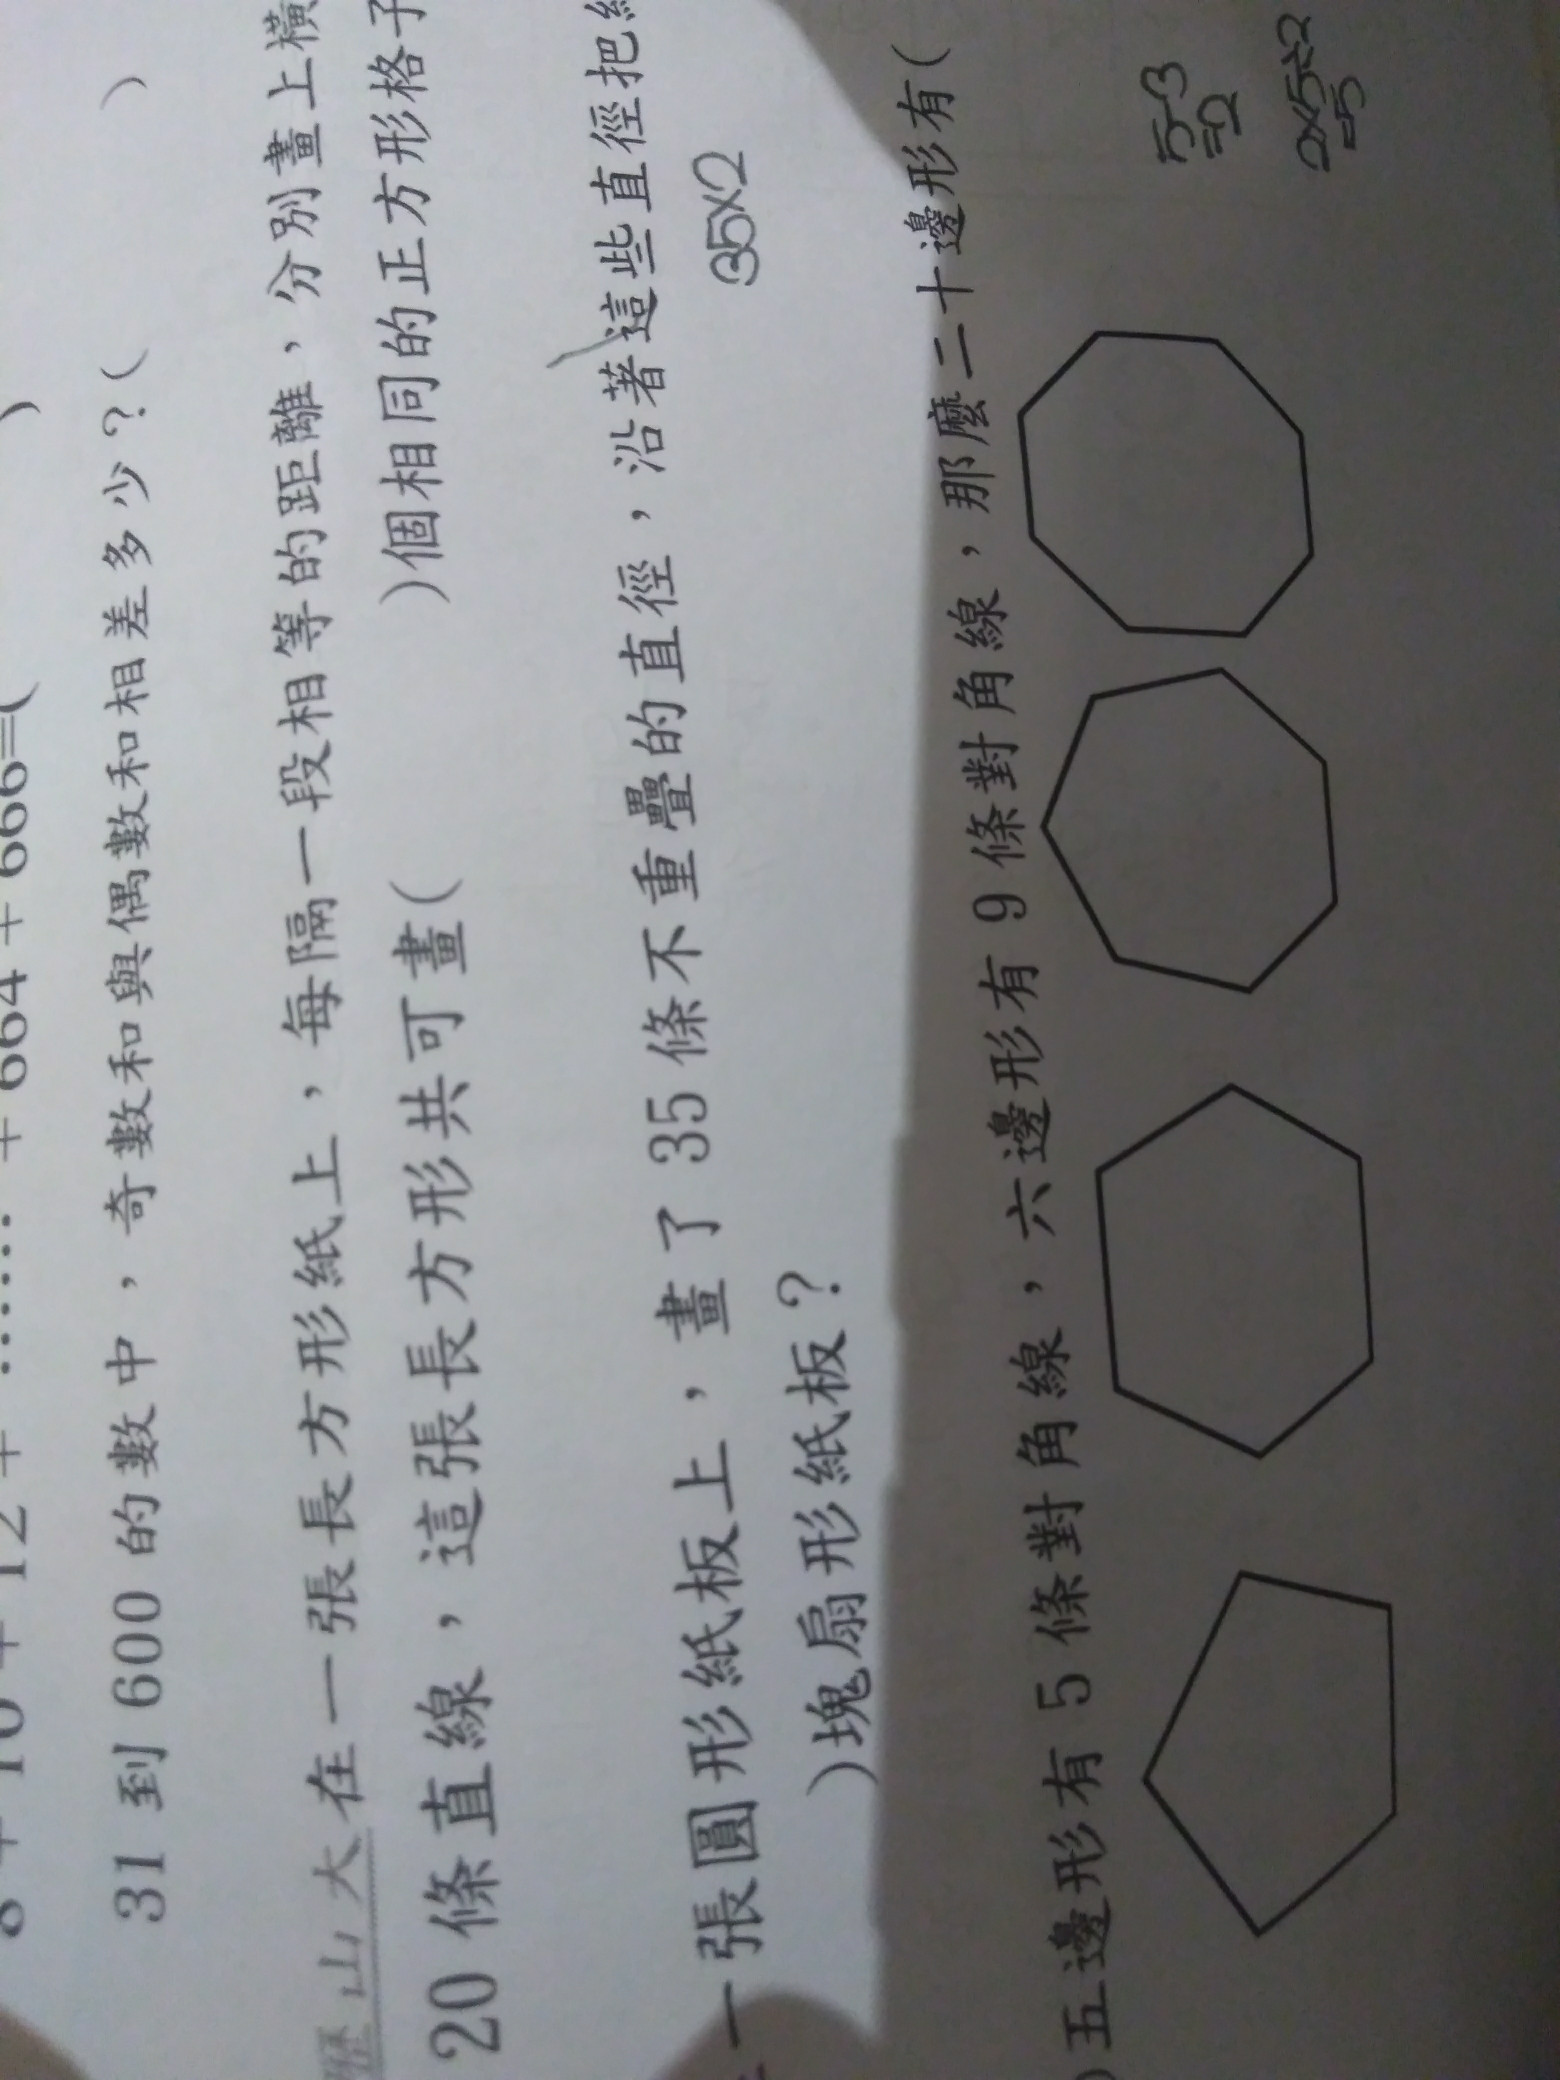 8 + 10 + 12 + …… + 664 + 666=( )
31 到 600 的數中，奇數和與偶數和相差多少？( )
歷山大在一張長方形紙上，每隔一段相等的距離，分別畫上橫
20 條直線，這張長方形共可畫( )個相同的正方形格子
一張圓形紙板上，畫了 35 條不重疊的直徑，沿著這些直徑把
)塊扇形紙板？
35×2
)五邊形有 5 條對角線，六邊形有 9 條對角線，那麼二十邊形有(
5-3
=2
2×5÷2
=5